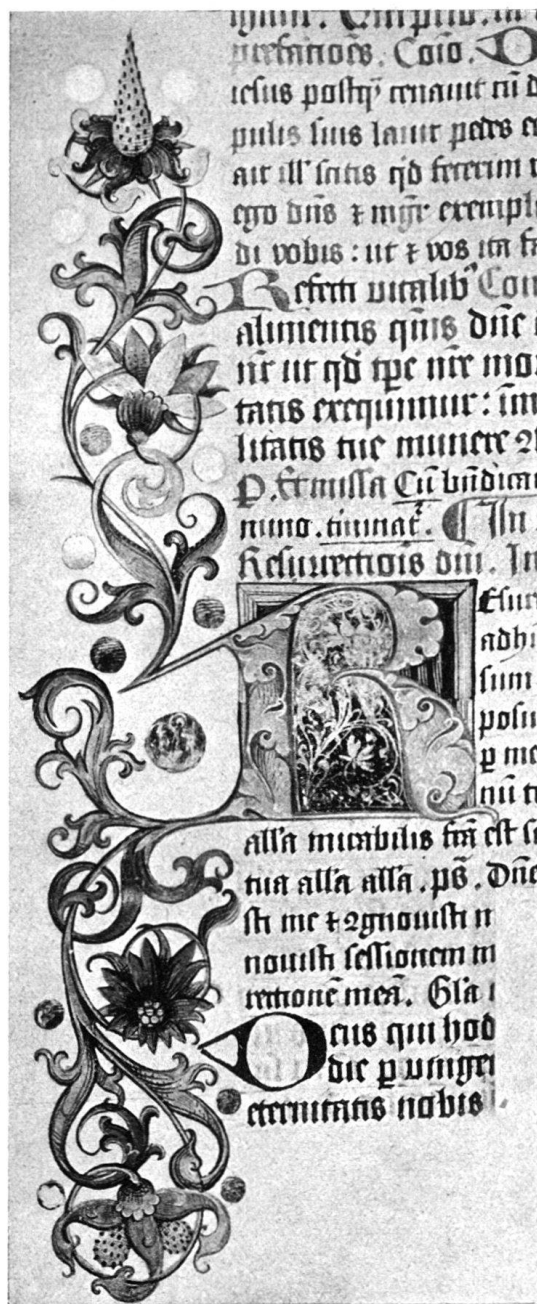 prefationes. Coio. D
iesus postq̃ cenauit cũ d
pulis suis lauit pedes e
ait ill' scitis qd fecerim v
ego dñs ⁊ mgr̃ exempl
di vobis : ut ⁊ vos ita fa
Refecti vitalib' Com
alimentis qm̃s dñe
nr̃ ut qd tp̃e nr̃e mor
tatis exequimur : im
litatis tue munere ꝯ
P. Et missa Cũ bñdicam
nimo . In
Resurrectiois dñi. In
Esur
adhu
sum
posu
ꝑ me
nũ t
all'a mirabilis fcã est sc
tua all'a all'a . ps̃. Dñe
sti me ⁊ ꝯgnouisti
nouisti sessionem m
rectionẽ meã. Gl'a
Deus qui hod
die ꝑ vnige
eternitatis nobis